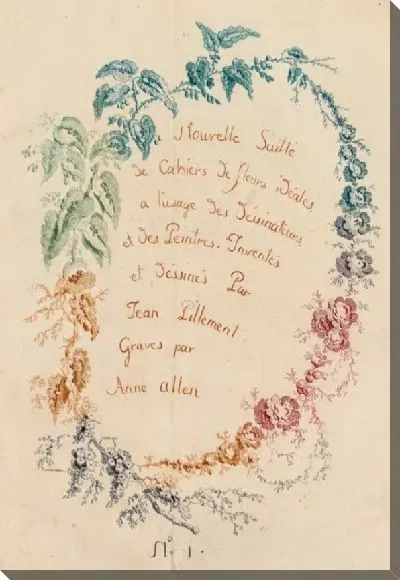 Nouvelle Suitte
de Cahiers de fleurs idéales
a l'usage des Déssinateurs
et des Peintres. Inventés
et déssinés Par
Jean Pillement
Gravés par
Anne allen
N.º 1.